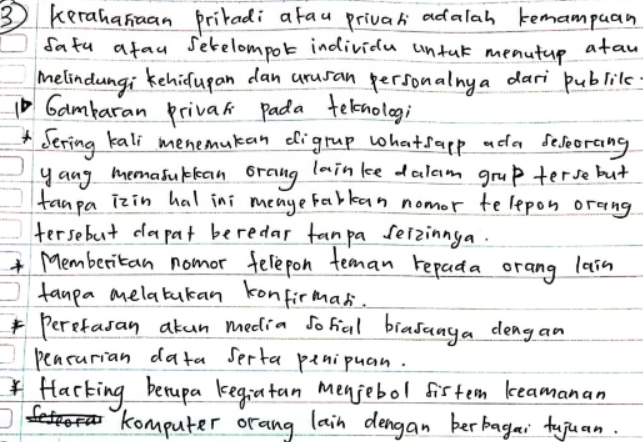 ③ Kerahasiaan pribadi atau privasi adalah kemampuan
satu atau sekelompok individu untuk menutup atau
melindungi kehidupan dan urusan personalnya dari publik.
1) Gambaran privasi pada teknologi
* Sering kali menemukan digrup whatsapp ada seseorang
yang memasukkan orang lain ke dalam grup tersebut
tanpa izin hal ini menyebabkan nomor telepon orang
tersebut dapat beredar tanpa seizinnya.
* Memberikan nomor telepon teman kepada orang lain
tanpa melakukan konfirmasi.
* Peretasan akun media sosial biasanya dengan
pencurian data serta penipuan.
* Hacking berupa kegiatan menjebol sistem keamanan
komputer orang lain dengan berbagai tujuan.